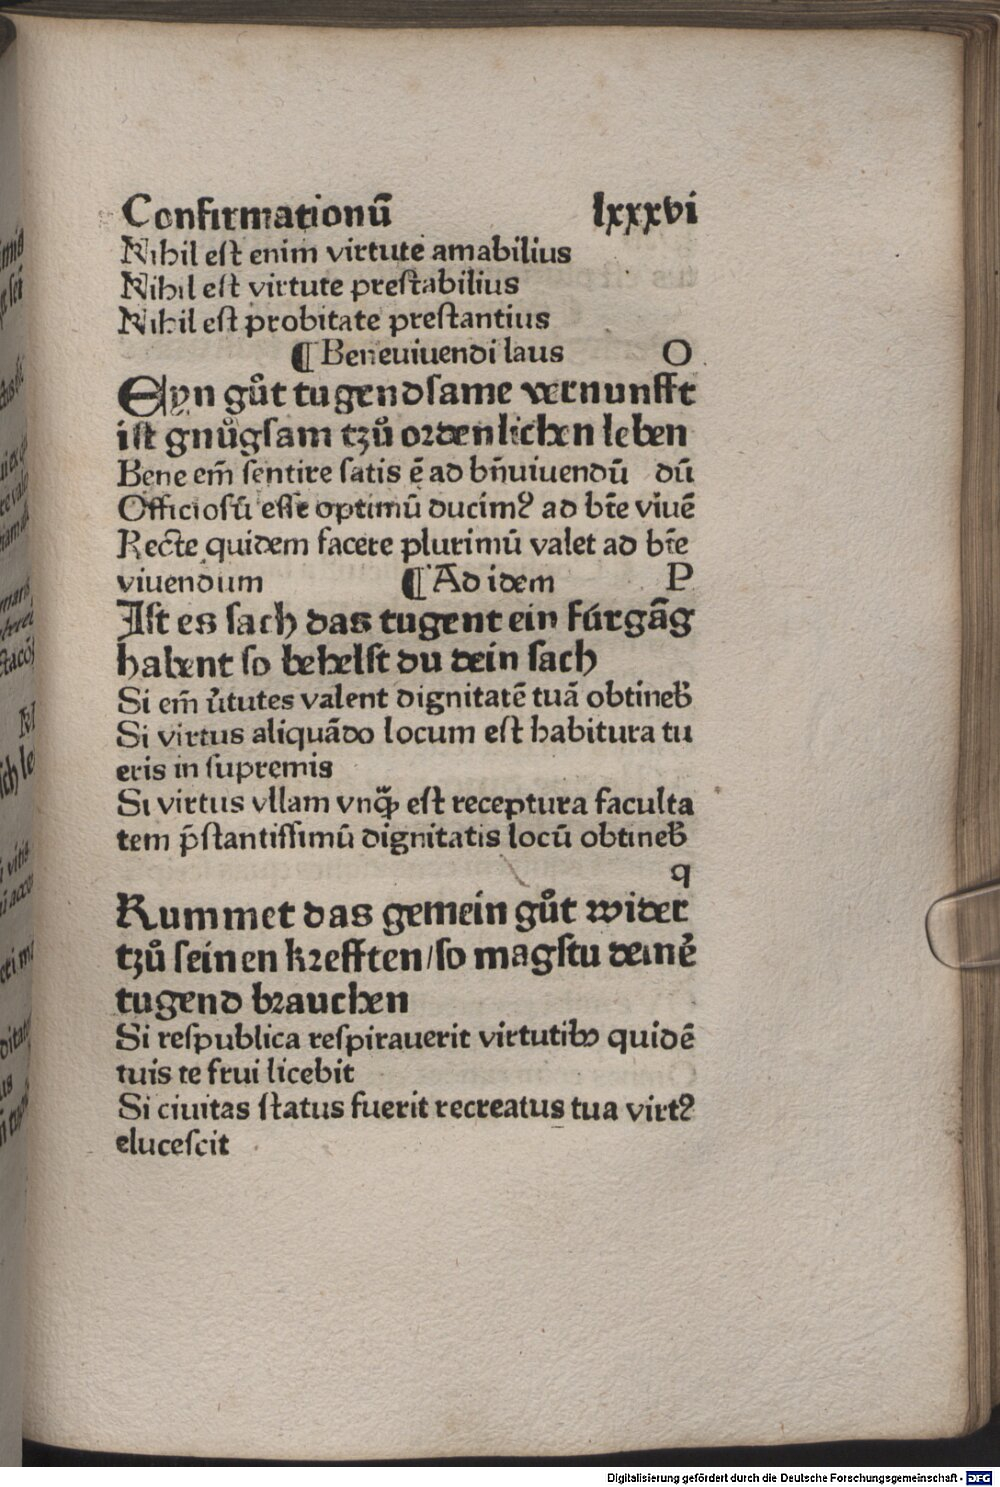 Confirmationū lxxxvi
Nihil eſt enim virtute amabilius
Nihil eſt virtute preſtabilius
Nihil eſt probitate preſtantius
¶ Beneuiuendi laus O
Eyn gůt tugendſame vernunfft
iſt gnůgſam tzů ordenlichen leben
Bene em̄ ſentire ſatis ē ad bn̄uiuendū dū
Officioſū eſſe optimū ducimꝰ ad bn̄e viuē
Recte quidem facere plurimū valet ad bn̄e
viuendum ¶ Ad idem P
Iſt es ſach das tugent ein fúrgāg
habent ſo behelſt du dein ſach
Si em̄ v̓tutes valent dignitatē tuā obtineb̄
Si virtus aliquādo locum eſt habitura tu
eris in ſupremis
Si virtus vllam vnꝗ̄ eſt receptura faculta
tem p̄ſtantiſſimū dignitatis locū obtineb̄
q
Kummet das gemein gůt wider
tzů ſeinen krefften/ſo magſtu deinē
tugend brauchen
Si reſpublica reſpirauerit virtutibꝰ quidē
tuis te frui licebit
Si ciuitas ſtatus fuerit recreatus tua virtꝰ
eluceſcit
Digitalisierung gefördert durch die Deutsche Forschungsgemeinschaft - DFG